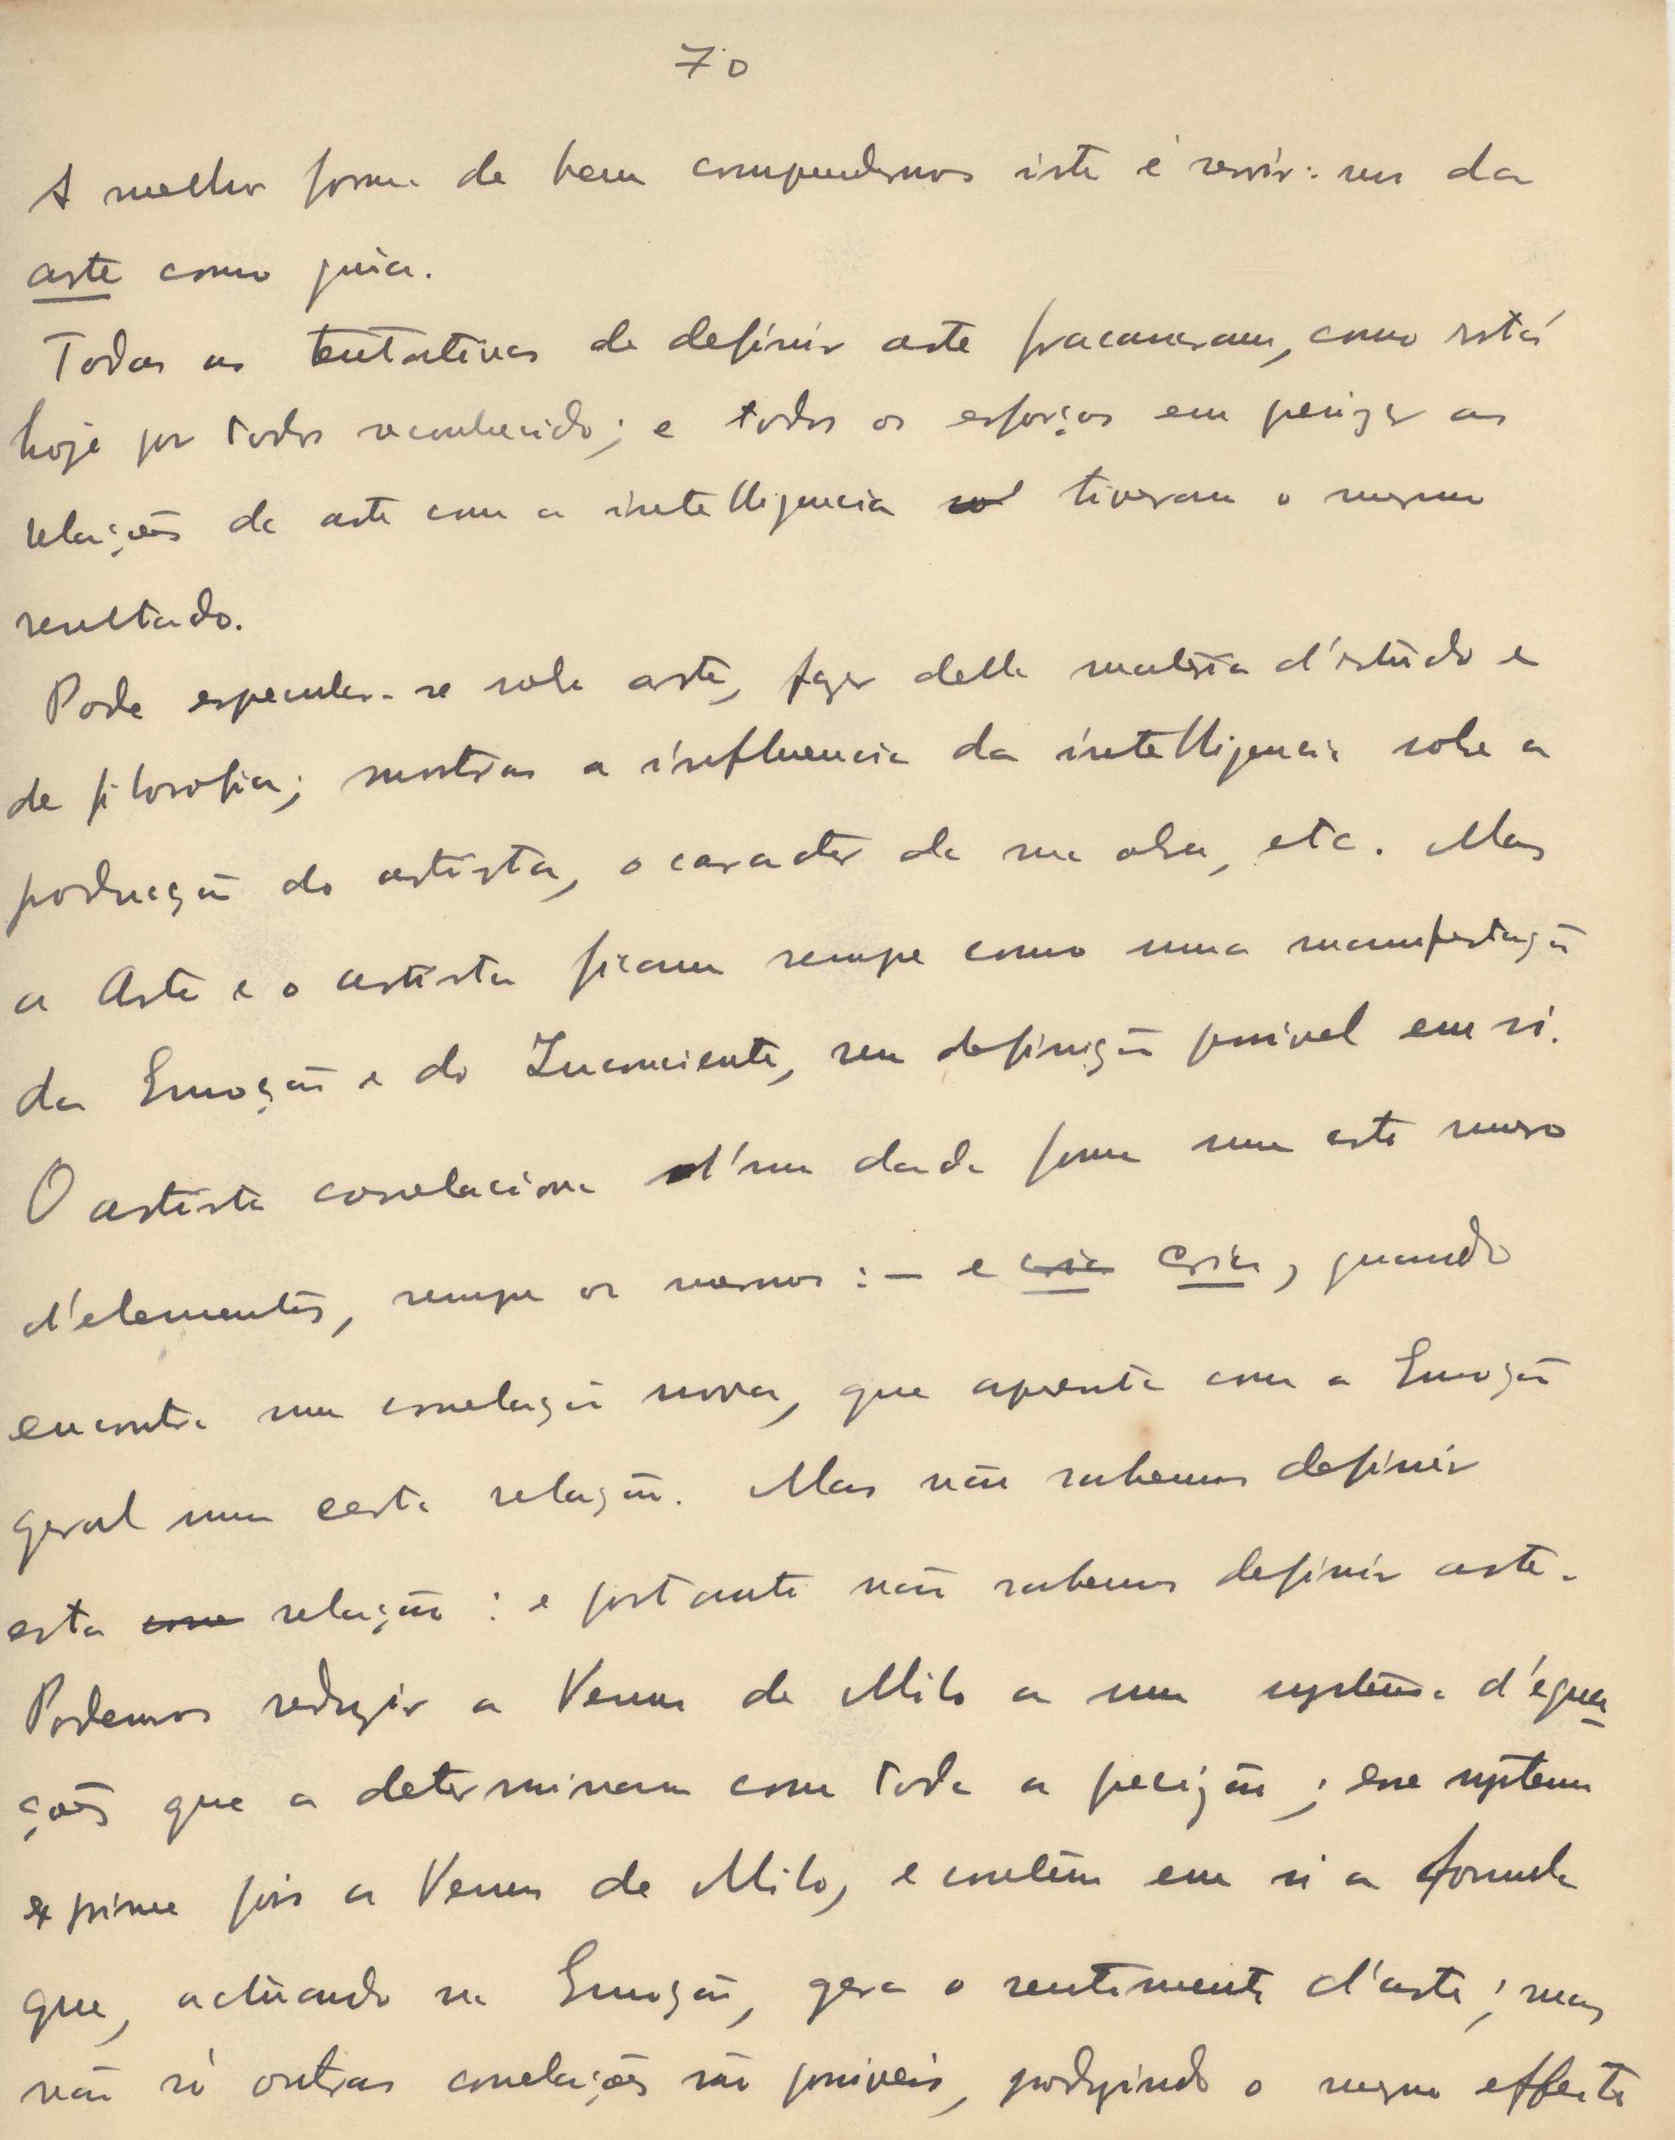 70
A melhor forma de bem comprendermos isto é servir-nos da
arte como guia.
Todas as tentativas de definir arte fracassaram, como está
hoje por todos reconhecido; e todos os esforços em precizar as
relações da arte com a intelligencia tiveram o mesmo
resultado.
Pode especular-se sobre arte, fazer della materia d'estudo e
de filosofia; mostrar a influencia da intelligencia sobre a
producção do artista, o caracter da sua obra, etc. Mas
a Arte e o artista ficam sempre como uma manifestação
da Emoção e do Inconsciente, sem definição possivel em si.
O artista correlaciona d'uma dada forma um certo numero
d'elementos, sempre os mesmos: – e cria cria, quando
encontra uma correlação nova, que apresenta com a Emoção
geral uma certa relação. Mas não sabemos definir
esta relação: e portanto não sabemos definir arte.
Podemos reduzir a Venus de Milo a um systema d'equa
ções que a determinam com toda a precizão; esse systema
exprime pois a Venus de Milo, e contêm em si a formula
que, actuando na Emoção, gera o sentimento d'arte; mas
não só outras correlações são possiveis, produzindo o mesmo effeito